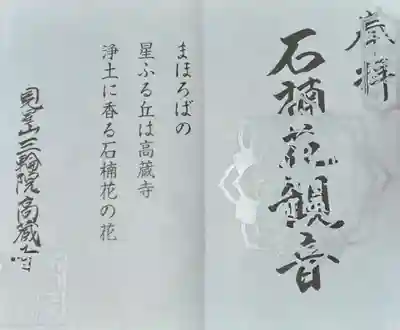 奉拝
石楠花観音
まほろばの
星ふる丘は高蔵寺
浄土に香る石楠花の花
見星山三輪院高蔵寺